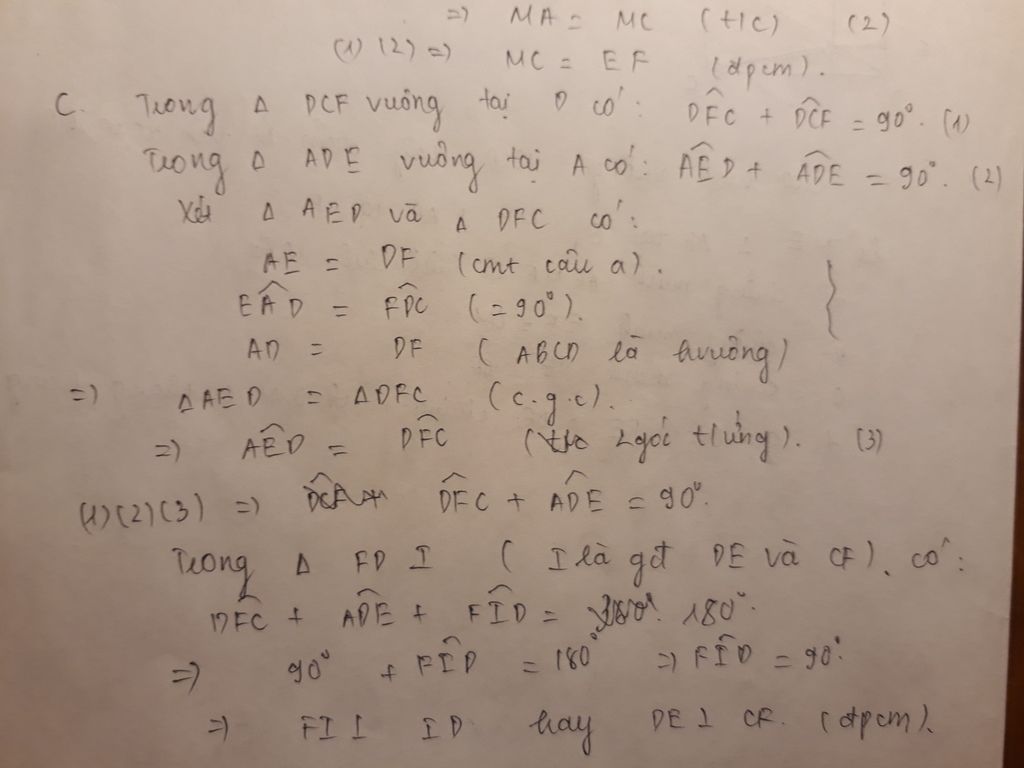 => MA = MC (t/c) (2)
(1) (2) => MC = EF (đpcm).
C. Trong Δ DCF vuông tại D có: DFC + DCF = 90°. (1)
Trong Δ ADE vuông tại A có: AED + ADE = 90°. (2)
Xét Δ AED và Δ DFC có:
AE = DF (cmt câu a).
EAD = FDC (= 90°).
AD = DF (ABCD là hvuông)
=> ΔAED = ΔDFC (c.g.c).
=> AED = DFC (2 góc t/ứng). (3)
(1)(2)(3) => DFC + ADE = 90°.
Trong Δ FDI (I là gđ DE và CF). có:
DFC + ADE + FID = 180°.
=> 90° + FID = 180° => FID = 90°.
=> FI ⊥ ID hay DE ⊥ CF. (đpcm).